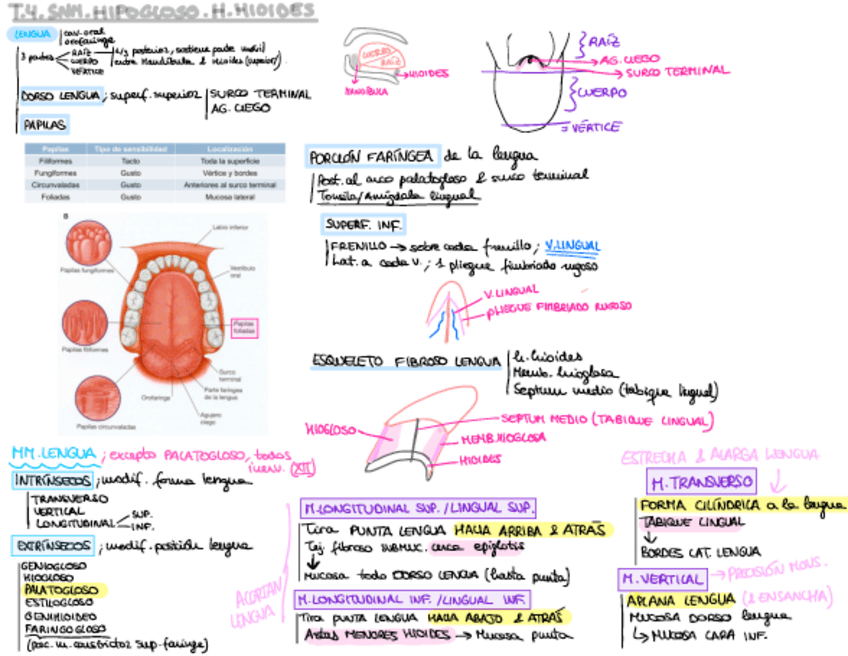 T.4. SNM. HIPOGLOSO. H. HIOIDES
LENGUA
cav. oral
orofaringe
3 partes
RAÍZ → 1/3 posterior, sostiene parte móvil
CUERPO entre mandíbula & hioides (superior).
VÉRTICE
DORSO LENGUA; superf. superior
SURCO TERMINAL
AG. CIEGO
PAPILAS
CUERPO
RAÍZ
HIOIDES
MANDIBULA
RAÍZ
AG. CIEGO
SURCO TERMINAL
CUERPO
= VÉRTICE
Papilas Tipo de sensibilidad Localización
Filiformes Tacto Toda la superficie
Fungiformes Gusto Vértice y bordes
Circunvaladas Gusto Anteriores al surco terminal
Foliadas Gusto Mucosa lateral
B
Labio inferior
Papilas fungiformes
Vestíbulo oral
Papilas foliadas
Papilas filiformes
Surco terminal
Parte faríngea de la lengua
Orofaringe
Agujero ciego
Papilas circunvaladas
PORCIÓN FARÍNGEA de la lengua
Post. al arco palatogloso & surco terminal
Tonsila/Amígdala lingual
SUPERF. INF.
FRENILLO → sobre cada frenillo; V. LINGUAL
Lat. a cada v.; 1 pliegue fimbriado rugoso
V. LINGUAL
PLIEGUE FIMBRIADO RUGOSO
ESQUELETO FIBROSO LENGUA
h. hioides
Memb. hioglosa
Septum medio (tabique lingual)
HIOGLOSO
SEPTUM MEDIO (TABIQUE LINGUAL)
MEMB. HIOGLOSA
HIOIDES
MM. LENGUA; excepto PALATOGLOSO, todos inerv. (XII)
INTRÍNSECOS; modif. forma lengua
TRANSVERSO
VERTICAL
LONGITUDINAL SUP.
INF.
EXTRÍNSECOS; modif. posición lengua
GENIOGLOSO
HIOGLOSO
PALATOGLOSO
ESTILOGLOSO
GENIHIOIDEO
FARINGOGLOSO
(fasc. m. constrictor sup. faringe)
ACORTAN LENGUA
M. LONGITUDINAL SUP. / LINGUAL SUP.
Tira PUNTA LENGUA HACIA ARRIBA & ATRÁS
Tej fibroso SUBMUC. cerca epiglotis
Mucosa todo DORSO LENGUA (hasta punta)
M. LONGITUDINAL INF. / LINGUAL INF.
Tira PUNTA LENGUA HACIA ABAJO & ATRÁS
Astas MENORES HIOIDES → Mucosa punta
ESTRECHA & ALARGA LENGUA
M. TRANSVERSO
FORMA CILÍNDRICA a la lengua
TABIQUE LINGUAL
BORDES LAT. LENGUA
M. VERTICAL → PRECISIÓN MONS.
APLANA LENGUA (& ENSANCHA)
MUCOSA DORSO lengua
↳ MUCOSA CARA INF.